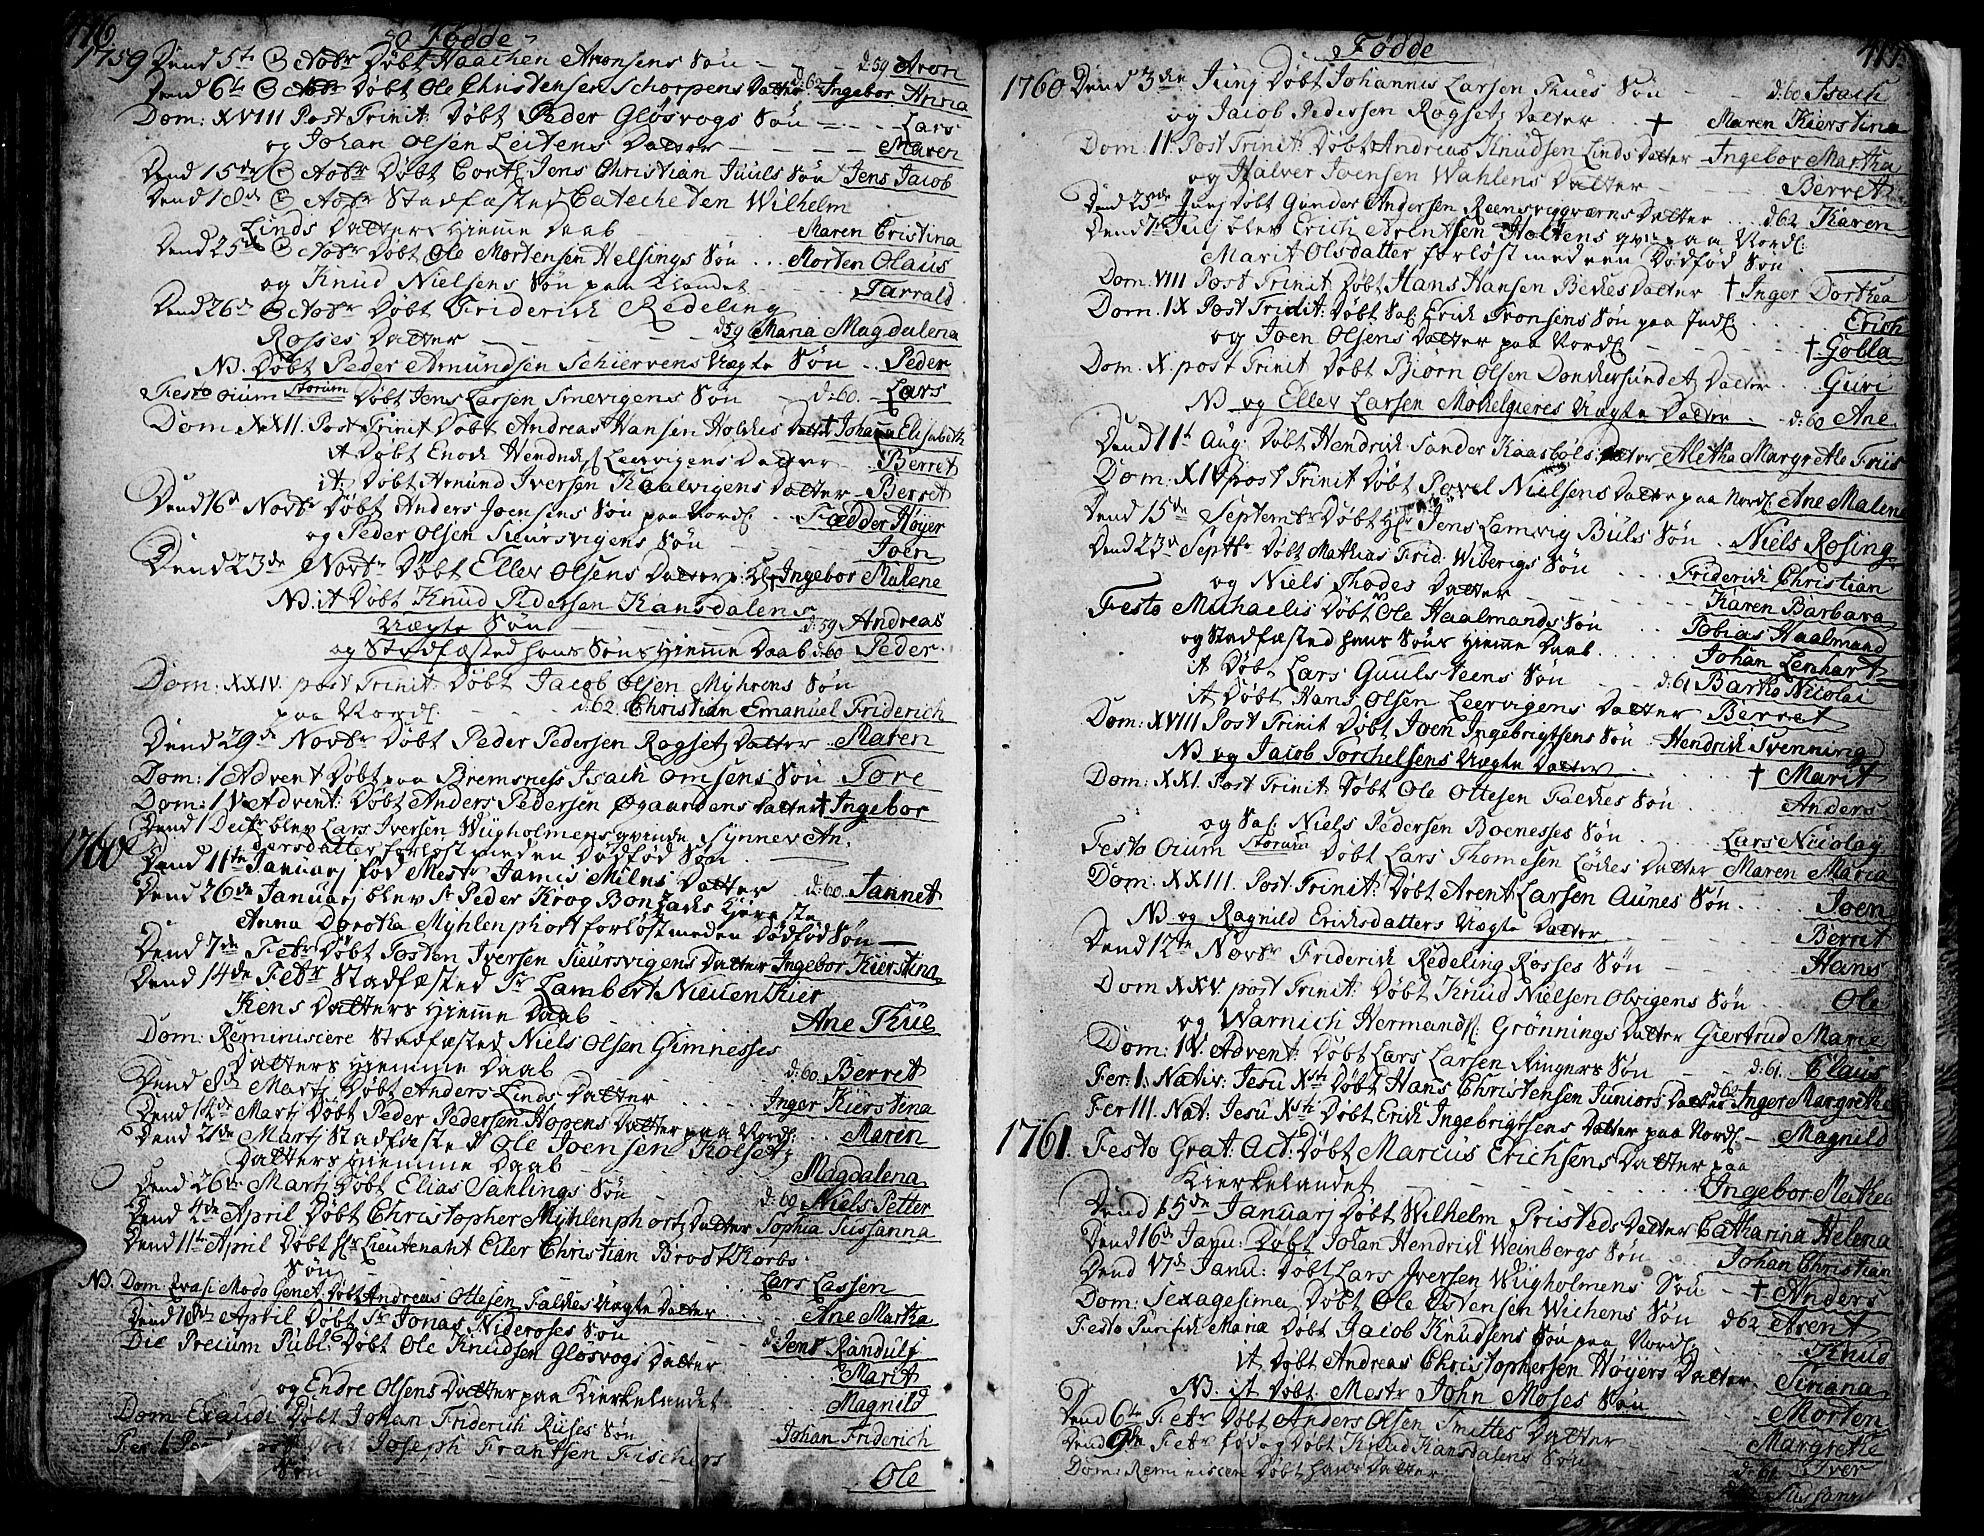 416.
Fødde
1759 Dend 5te Octobr Døbt Haachen Aronsens Søn - - d:59 Aron
Dend 6te Octobr Døbt Ole Christensen Schorpens Datter d:62 Ingebor Anna
Dom: XVIII Post Trinit: Døbt Peder Gløsvogs Søn - - - Lars
og Johan Olsen Leitens Datter - - - - Maren
Dend 15de Octobr Døbt Jens Christian Juuls Søn Jens Jacob
Dend 18de Octobr Stadfæsted Catecheten Wilhelm
Linds Datters Hiemme Daab Maren Cristina
Dend 25de Octobr Døbt Ole Mortensen Helsings Søn ... Morten Olaus
og Knud Nielsens Søn paa Landet Tarrald
Dend 26de Octobr Døbt Friderich Redeling
Rosses Datter - - - d:59 Maria Magdalena
NB. Døbt Peder Amundsen Schiervens Uægte Søn .. Peder
Festo Oium Storum Døbt Jens Larsen Smevigens Søn - d:60. - Lars
Dom XXII. Post Trinit Døbt Andreas Hansen Holches Datt † Johanna Elisabeth
it Døbt Enoch Hendrichs: Leervigens Datter - Berret
it: Døbt Amund Iversen Kaalvigens Datter - Berret
Dend 16de Novbr Døbt Anders Joensens Søn paa Nordl: . Fædder Høyer
og Peder Olsen Sieursvigens Søn - - Joen
Dend 23de Novbr Døbt Eller Olsens Datter Ingebor Malene
NB. it Døbt Knud Pedersen Kansdalens
Uægte Søn - - - d:59 Andreas
og Stadfæsted hans Søns Hiemme Daab d:60 Peder
Dom: XXIV. post Trinit: Døbt Jacob Olsen Myhrens Søn
paa Nordl: - - - d:62. Christian Emanuel Friderich
Dend 29de Novbr Døbt Peder Pedersen Ragsetz Datter - Maren
Dom: 1 Advent Døbt paa Bremsness Isach Omsens Søn Tore
Dom: IV Advent: Døbt Anders Pedersen Øgaardens Datter † Ingebor
Dend 1 Decbr blev Lars Iversen Wügholmens qvinde Synnev An-
dersdatter forløst med en Dødfød Søn
1760 Dend 11te Januarj fød Mestr Jamis Milns Datter d:60. Jannet
Dend 26de Januarj blev Sr Peder Krog Bonsachs Kiereste
Anna Dorotha Myhlenphort forløst med en Dødfød Søn -
Dend 7de Febr Døbt Tosten Iversen Sieursvigens Datter Ingebor Kierstina
Dend 14de Febr Stadfæsted Sr Lambert Nieuenthier
Kens Datters Hiemme Daab Ane Thue
Dom: Reminiscere Stadfæsted Niels Olsen Gimnesses
Datters Hiemme Daab d:60. Berret
Dend 8de Martj Døbt Anders Linds Datter .... Inger Kierstina
Dend 12de Martj Døbt Peder Pedersen Hopens Datter paa Nordl: .. Maren
Dend 21de Martj Stadfæsted Ole Joensen Kolsetz
Datters Hiemme Daab - - Magdalena
Dend 26de Martj Døbt Elias Sahlings Søn - d:60 Niels Petter
Dend 2de April Døbt Christopher Myhlenphortz Datter Sophia Susanna
Dend 11te April Døbt Hr Lieutenant Eiler Christian Brodtkorbs
Søn Lars Lassen
NB. Dom: Qvasi Modo Genet: Døbt Andreas Ottesen Falches Uægte Datter ... Ane Martha
Dend 18de April Døbt Sr Jonas Nideroses Søn d: Jens Randulf
Die Precum Publ: Døbt Ole Knudsen Gløsvogs Datter Marit
og Endre Olsens Datter paa Kierkelandet Magnild
Dom Exaudi Døbt Johan Friderich Ruses Søn Johan Friderich
Fer: 1 Døbt Joseph Frantsen Fischers
Søn - - - Ole
417.
Fødde
1760 Dend 3de Junj Døbt Johannis Larsen Thues Søn - - d:60 Isach
og Jacob Pedersen Ragsetz Datter .. † Maren Kierstina
Dom: II Post Trinit: Døbt Andreas Knudsen Linds Datter Ingebor Martha
og Halver Joensen Wahlens Datter - - - Berret
Dend 25de Junj Døbt Gunder Andersen Reensviggværns Datter .. d:62 Karen
Dend 7de Julj blev Erich Arentsen Holtens qvinde paa Nordl:
Marit Olsdatter forløst med een Dødfød Søn
Dom: VIII Post Trinit: Døbt Hans Hansen Beches Datter † Inger Dorthea
Dom: IX Post Trinit: Døbt Sal: Erich Tronsens Søn paa Indl: .... Erich
og Joen Olsens Datter paa Nordl: - - - † Gobla
Dom: X. post Trinit Døbt Biørn Olsen Donchersundetz Datter .. Guri
NB og Eller Larsen Møchelgieres Uægte Datter - d:60 Ane
Dend 11te Aug Døbt Hendrich Sander Kaasbøls Datter Aletha Margrethe Friis
Dom: XIV post Trinit Døbt Povel Nielsens Datter paa Nordl: Ane Malena
Dend 15de Septembr Døbt Hr Jens Lemvig Bülls Søn . Niels Rosing
Dend 23de Septbr Døbt Mathias Frid: Wibergs Søn ... Friderich Christian
og Niels Thodes Datter - - - Karen Barbara
Festo Michaelis Døbt Ole Haalmands Søn ... Tobias Haalmand
og Stadfæsted hans Søns Hiemme Daab .... Johan Lenhart
it Døbt Lars Guulsteens Søn - d:61 Bartho Nicolai
it Døbt Hans Olsen Leervigens Datter Berret
Dom: XVIII Post Trinit Døbt Joen Ingebrigtsens Søn . Hendrich Svenning
NB og Jacob Torchelsens Uægte Datter ... † Marit
Dom: XXI. Post Trinit: Døbt Ole Ottesen Falches Søn ... Anders
og Sal: Niels Pedersen Boenesses Søn ... Lars Nicolay
Festo Oium Storum Døbt Lars Thomesen Løches Datter Maren Maria
Dom: XXIII. Post Trinit: Døbt Arent Larsen Aunes Søn .. Joen
NB og Ragnild Erichsdatters Uægte Datter - - Berret
Dend 12te Novbr Friderich Redeling Rosses Søn - - Hans
Dom XXV. post Trinit: Døbt Knud Nielsen Olvigens Søn .. Ole
og Warnich Hermands: Grønnings Datter Giertrud Marie
Dom: IV. Advent: Døbt Lars Larsen Ringners Søn - d:61. Claus
Fer: 1. Nativ: Jesu Xsti Døbt Hans Christensen Juniors Datter d:62 Inger Margrethe
Fer III. Nat: Jesu Xsti Døbt Erich Ingebrigtsens Datter paa Nordl: - Magnild
1761. Festo Grat: Act: Døbt Marcus Erichsens Datter paa
Kierkelandet - - - Ingebor Mathea
Dend 15de Januarj Døbt Wilhelm Pristeds Datter Catharina Helena
Dend 16de Janu: Døbt Johan Hendrich Weinbergs Søn . Johan Christian
Dend 17de Janu: Døbt Lars Iversen Wügholmens Søn - † Anders
Dom: Sexagesima Døbt Ole Østensen Wichens Søn d:62 Arent
Festo Purific: Mariæ Døbt Jacob Knudsens Søn paa Nordl: ... Knud
it Døbt Andreas Christophersen Høyers Datter. Siriana
NB. it Døbt Mestr John Moses Søn - Morten
Dend 6te Febr Døbt Anders Olsen Smittes Datter - Margrethe
Dend 9de Febr fød og Døbt Knud Kansdalens Søn - d:61 Iver
Dom: Reminiscere Døbt hans Datter - Susanna